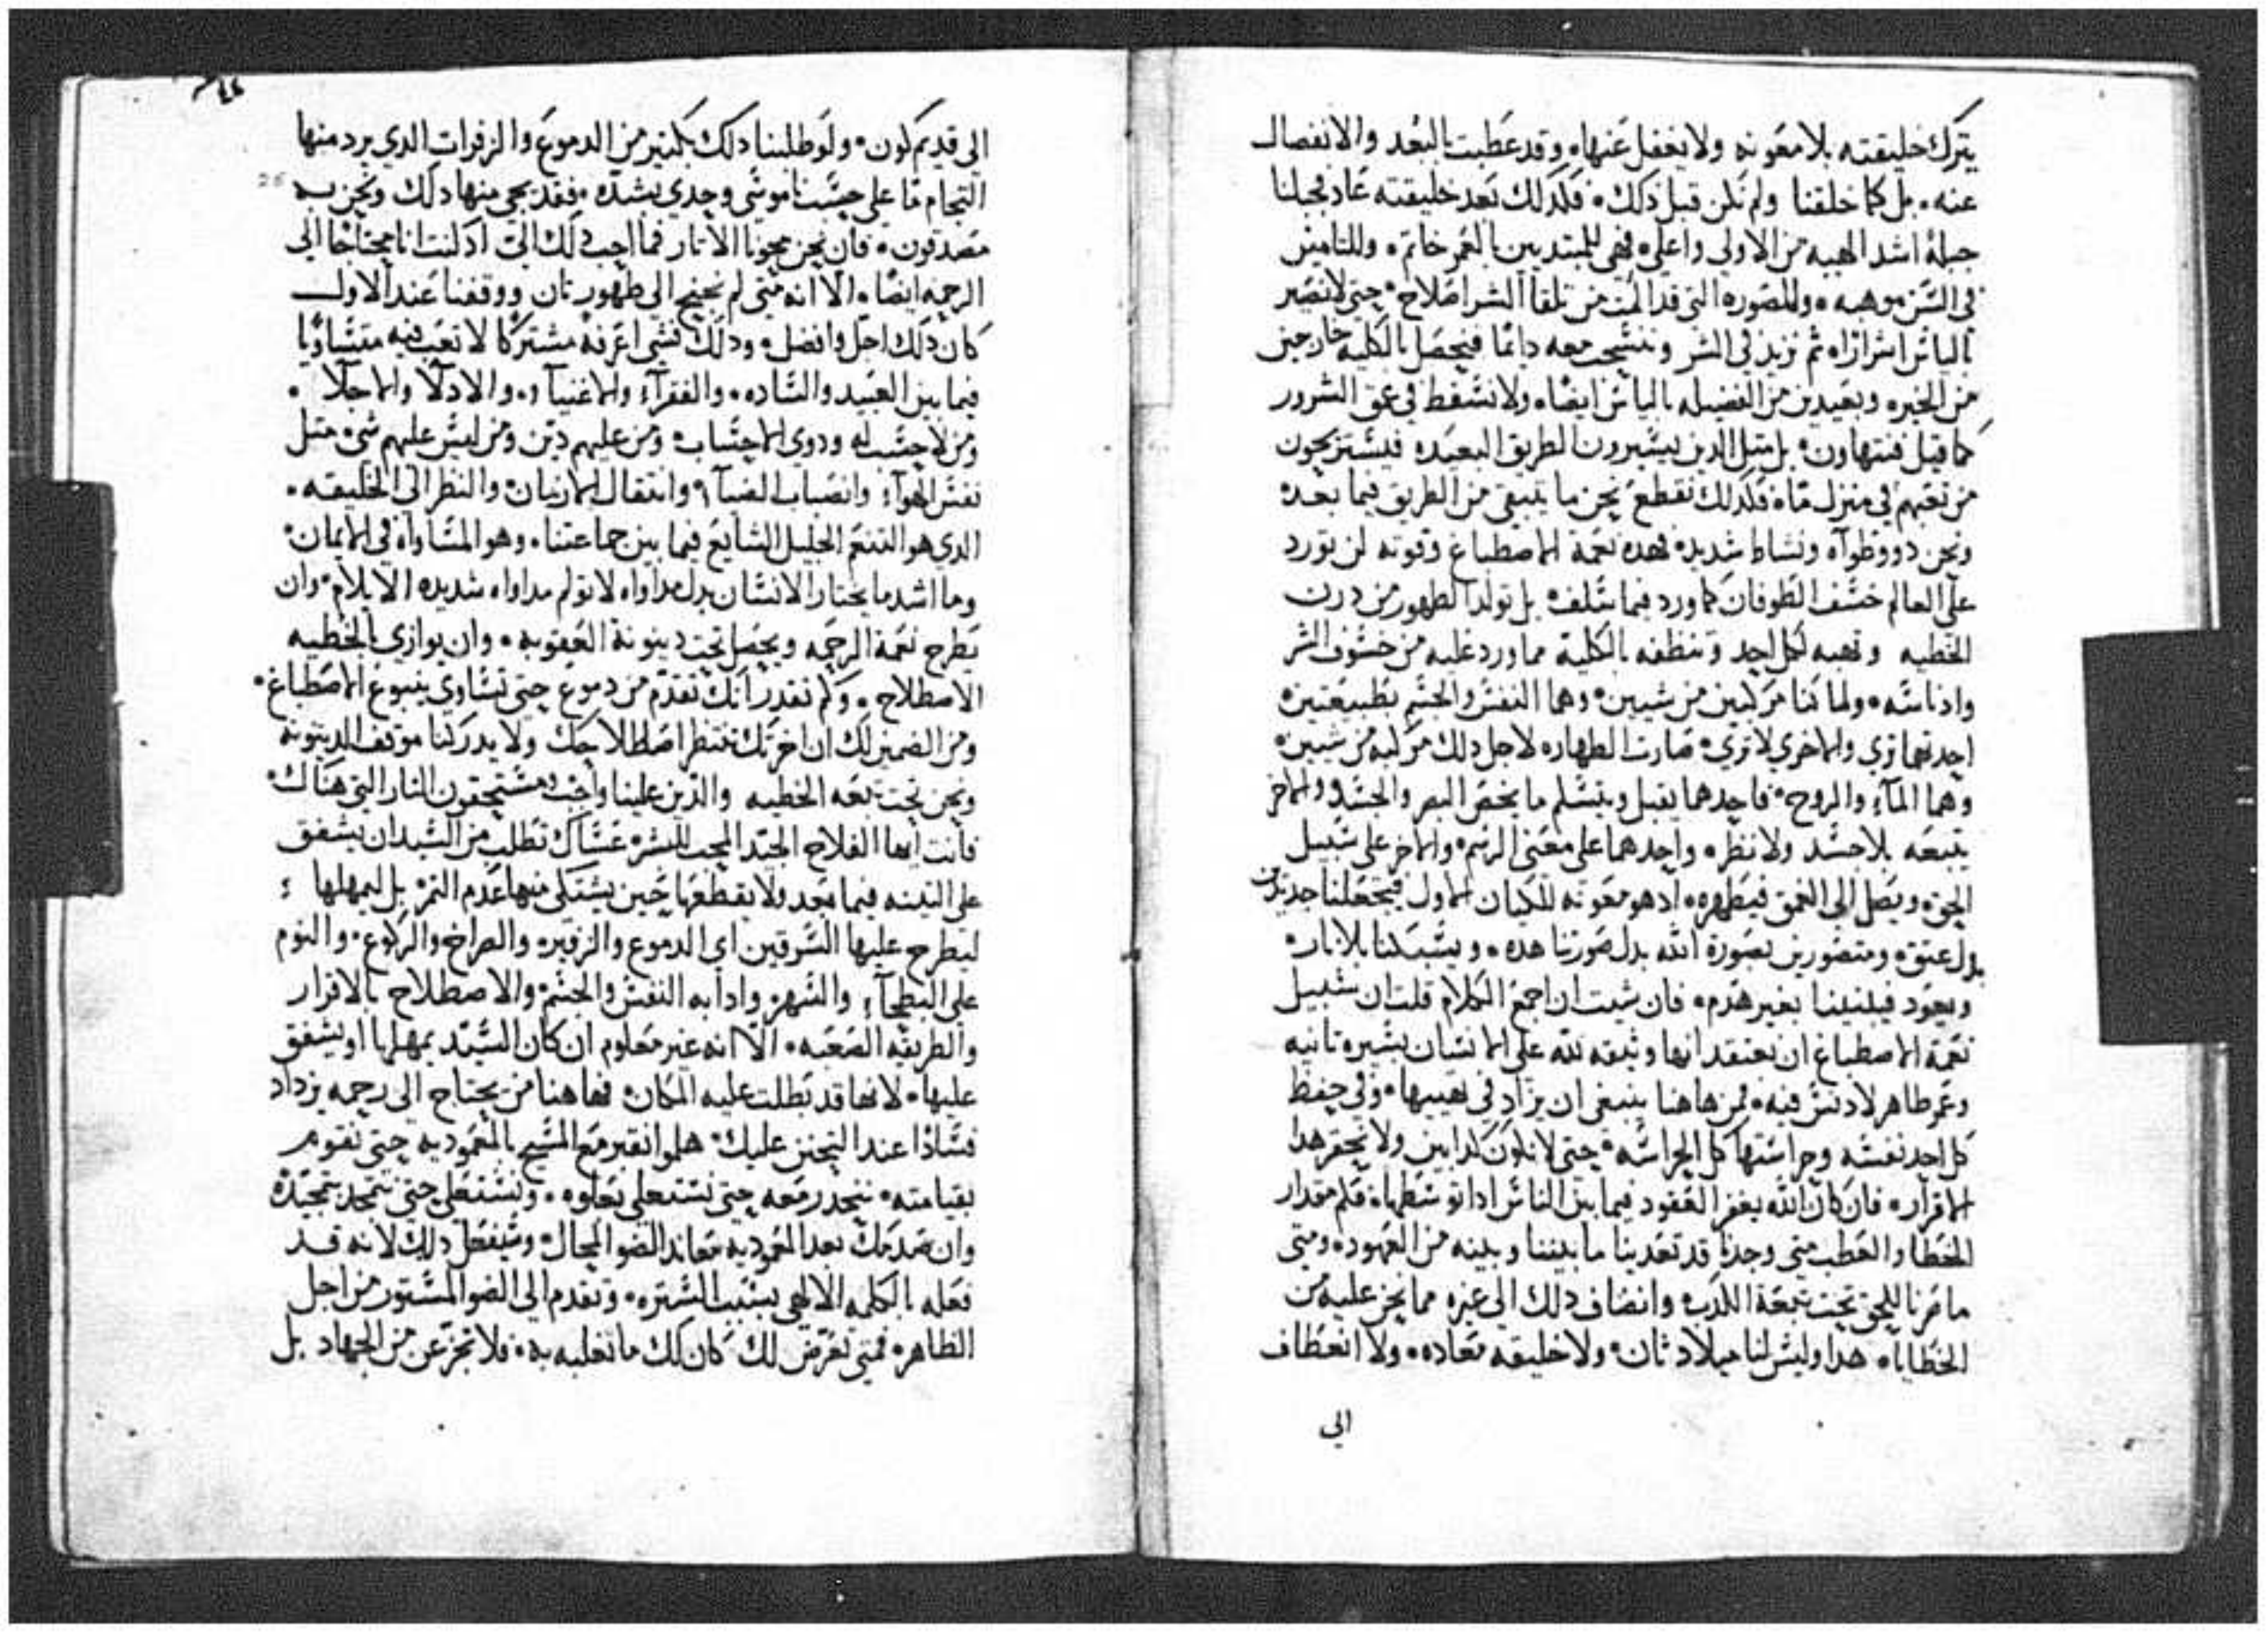 يترك خليقته بلا معونه ولا يغفل عنها، وقد عطبت بالبعد والانفصال
عنه، بل كما خلقنا ولم نكن قبل ذلك، فكذلك بعد خليقته عاد فجبلنا
جبلة اشد الهيه من الاولى واعلى، فهي للمبتديين بالعمر خاتم، وللتامين
في السن موهبه، وللصوره التي قد المت من تلقا الشر اصلاح، حتى لا نصير
بالياس اشرارا، ثم نزيد في الشر وننسحب معه دايما فنحصل بالكليه خارجين
من الخيره وبعيدين من الفضيله بالياس ايضا، ولا نسقط في عمق الشرور
كما قيل فنتهاون، بل مثل الدين يسيرون الطريق البعيده فيستريحون
من تعبهم في منزل ما، فكدلك نقطع نحن ما يتبقى من الطريق فيما بعد
ونحن دوو طرآه ونشاط شديد، فهده نعمة الاصطباغ وقوته لن تورد
على العالم خسف الطوفان كما ورد فيما سلف، بل تولد الطهور من درن
الخطيه وتهبه لكل احد وتنظفه بالكلية مما ورد عليه من خسوف الشر
وادناسه، ولما كنا مركبين من شيين، وهما النفس والجسم بطبيعتين
احدتهما ترى والاخرى لا ترى، صارت الطهاره لاجل دلك مركبه من شيين
وهما المآء والروح، فاحدهما يقبل ويتسلم ما يخص البصر والجسد، والاخر
يتبعه بلا جسد ولا نظر، واحدهما على معنى الرسم، والاخر على سبيل
الحق، ويصل الى العمق فيطهره، اد هو معونه للكيان الاول فيجعلنا جددين
بدل عتق، ومتصورين بصورة الله بدل صورتنا هده، ويسبكنا بلا نار
ويعود فيبنينا بغير هدم، فان شيت ان اجمع الكلام قلت ان سبيل
نعمة الاصطباغ ان نعتقد انها وثيقه لله على الانسان بسيره ثانيه
وعمر طاهر لا دنس فيه، فمن هاهنا ينبغي ان يزاد في تهيبها، وفي حفظ
كل احد نفسه وحراستها كل الحراسه، حتى لا نكون كدابين ولا نحقر هدا
الاقرار، فان كان الله يغفر العقود فيما بين الناس ادا توسطها، فكم مقدار
الخطا والعطب متى وجدنا قد تعدينا ما بيننا وبينه من العهود، ومتى
ما صرنا للحق تحت تبعة الكدب وانضاف دلك الى غيره مما نحن عليه من
الخطايا، هدا وليس لنا ميلاد ثان، ولا خليقه معاده، ولا انعطاف
الى
الى قديم كون، ولو طلبنا دلك بكثير من الدموع والزفرات الدي يرد منها
التحام ما على جسنا موسى وجدي بشده، فقد يجي منها دلك ونحن به
مصدقون، فان نحن محونا الاثار فما احب دلك الي اد كنت انا محتاجا الى
الرحمه ايضا، الا انه متى لم نحتج الى طهور ثان ووقفنا عند الاول
كان دلك اجل وافضل، ودلك شي اعرفه مشتركا لا تعب فيه متساويا
فيما بين العبيد والساده، والفقرآء والاغنيآء، والادلا والاجلا،
ومن لا حسب له ودوي الاحساب، ومن عليهم دين ومن ليس عليهم شي، مثل
نفس الهوآء وانصباب الضيآء، وانتقال الازمان والنظر الى الخليقه،
الدي هو التنعم الجليل الشايع فيما بين جماعتنا، وهو المساواه في الايمان،
وما اشد ما يختار الانسان بدل مداواه لا تولم مداواه شديده الايلام، وان
يطرح نعمة الرحمه ويحصل تحت دينونة العقوبه، وان يوازي بالخطيه
الاصطلاح، وكم تقدر انك تقدم من دموع حتى تساوي ينبوع الاصطباغ،
ومن الضمين لك ان اخرتك تنتظر اصطلاحك ولا يدركنا موقف الدينونه
ونحن تحت تبعه الخطيه والدين علينا واجب مستحقون النار التي هناك،
فانت ايها الفلاح الجيد المحب للبشر، عساك تطلب من السيد ان يشفق
على التينه فيما بعد ولا يقطعها حين يشتكى منها عدم الثمر، بل ليمهلها
ليطرح عليها السرقين اي الدموع والزفير، والصراخ والركوع، والنوم
على البطحآء والسهر، وادابه النفس والجسم، والاصطلاح بالاقرار
والطريقه الصعبه، الا انه غير معلوم ان كان السيد يمهلها او يشفق
عليها، لانها قد بطلت عليه المكان، فهاهنا من يحتاج الى رحمه يزداد
فسادا عند التحنن عليك، هلموا نقبر مع المسيح بالمعموديه حتى نقوم
بقيامته، ننحدر معه حتى نستعلي بعلوه، ونستعلي حتى نتمجد بتمجيده
وان صدمك بعد المعموديه معاند الضو المحال، وسيفعل دلك لانه قد
فعله بالكلمه الالهي بسبب الستره، وتقدم الى الضو المستور من اجل
الظاهر، فمتى تعرض لك كان لك ما تغلبه به، فلا تجزعن من الجهاد بل